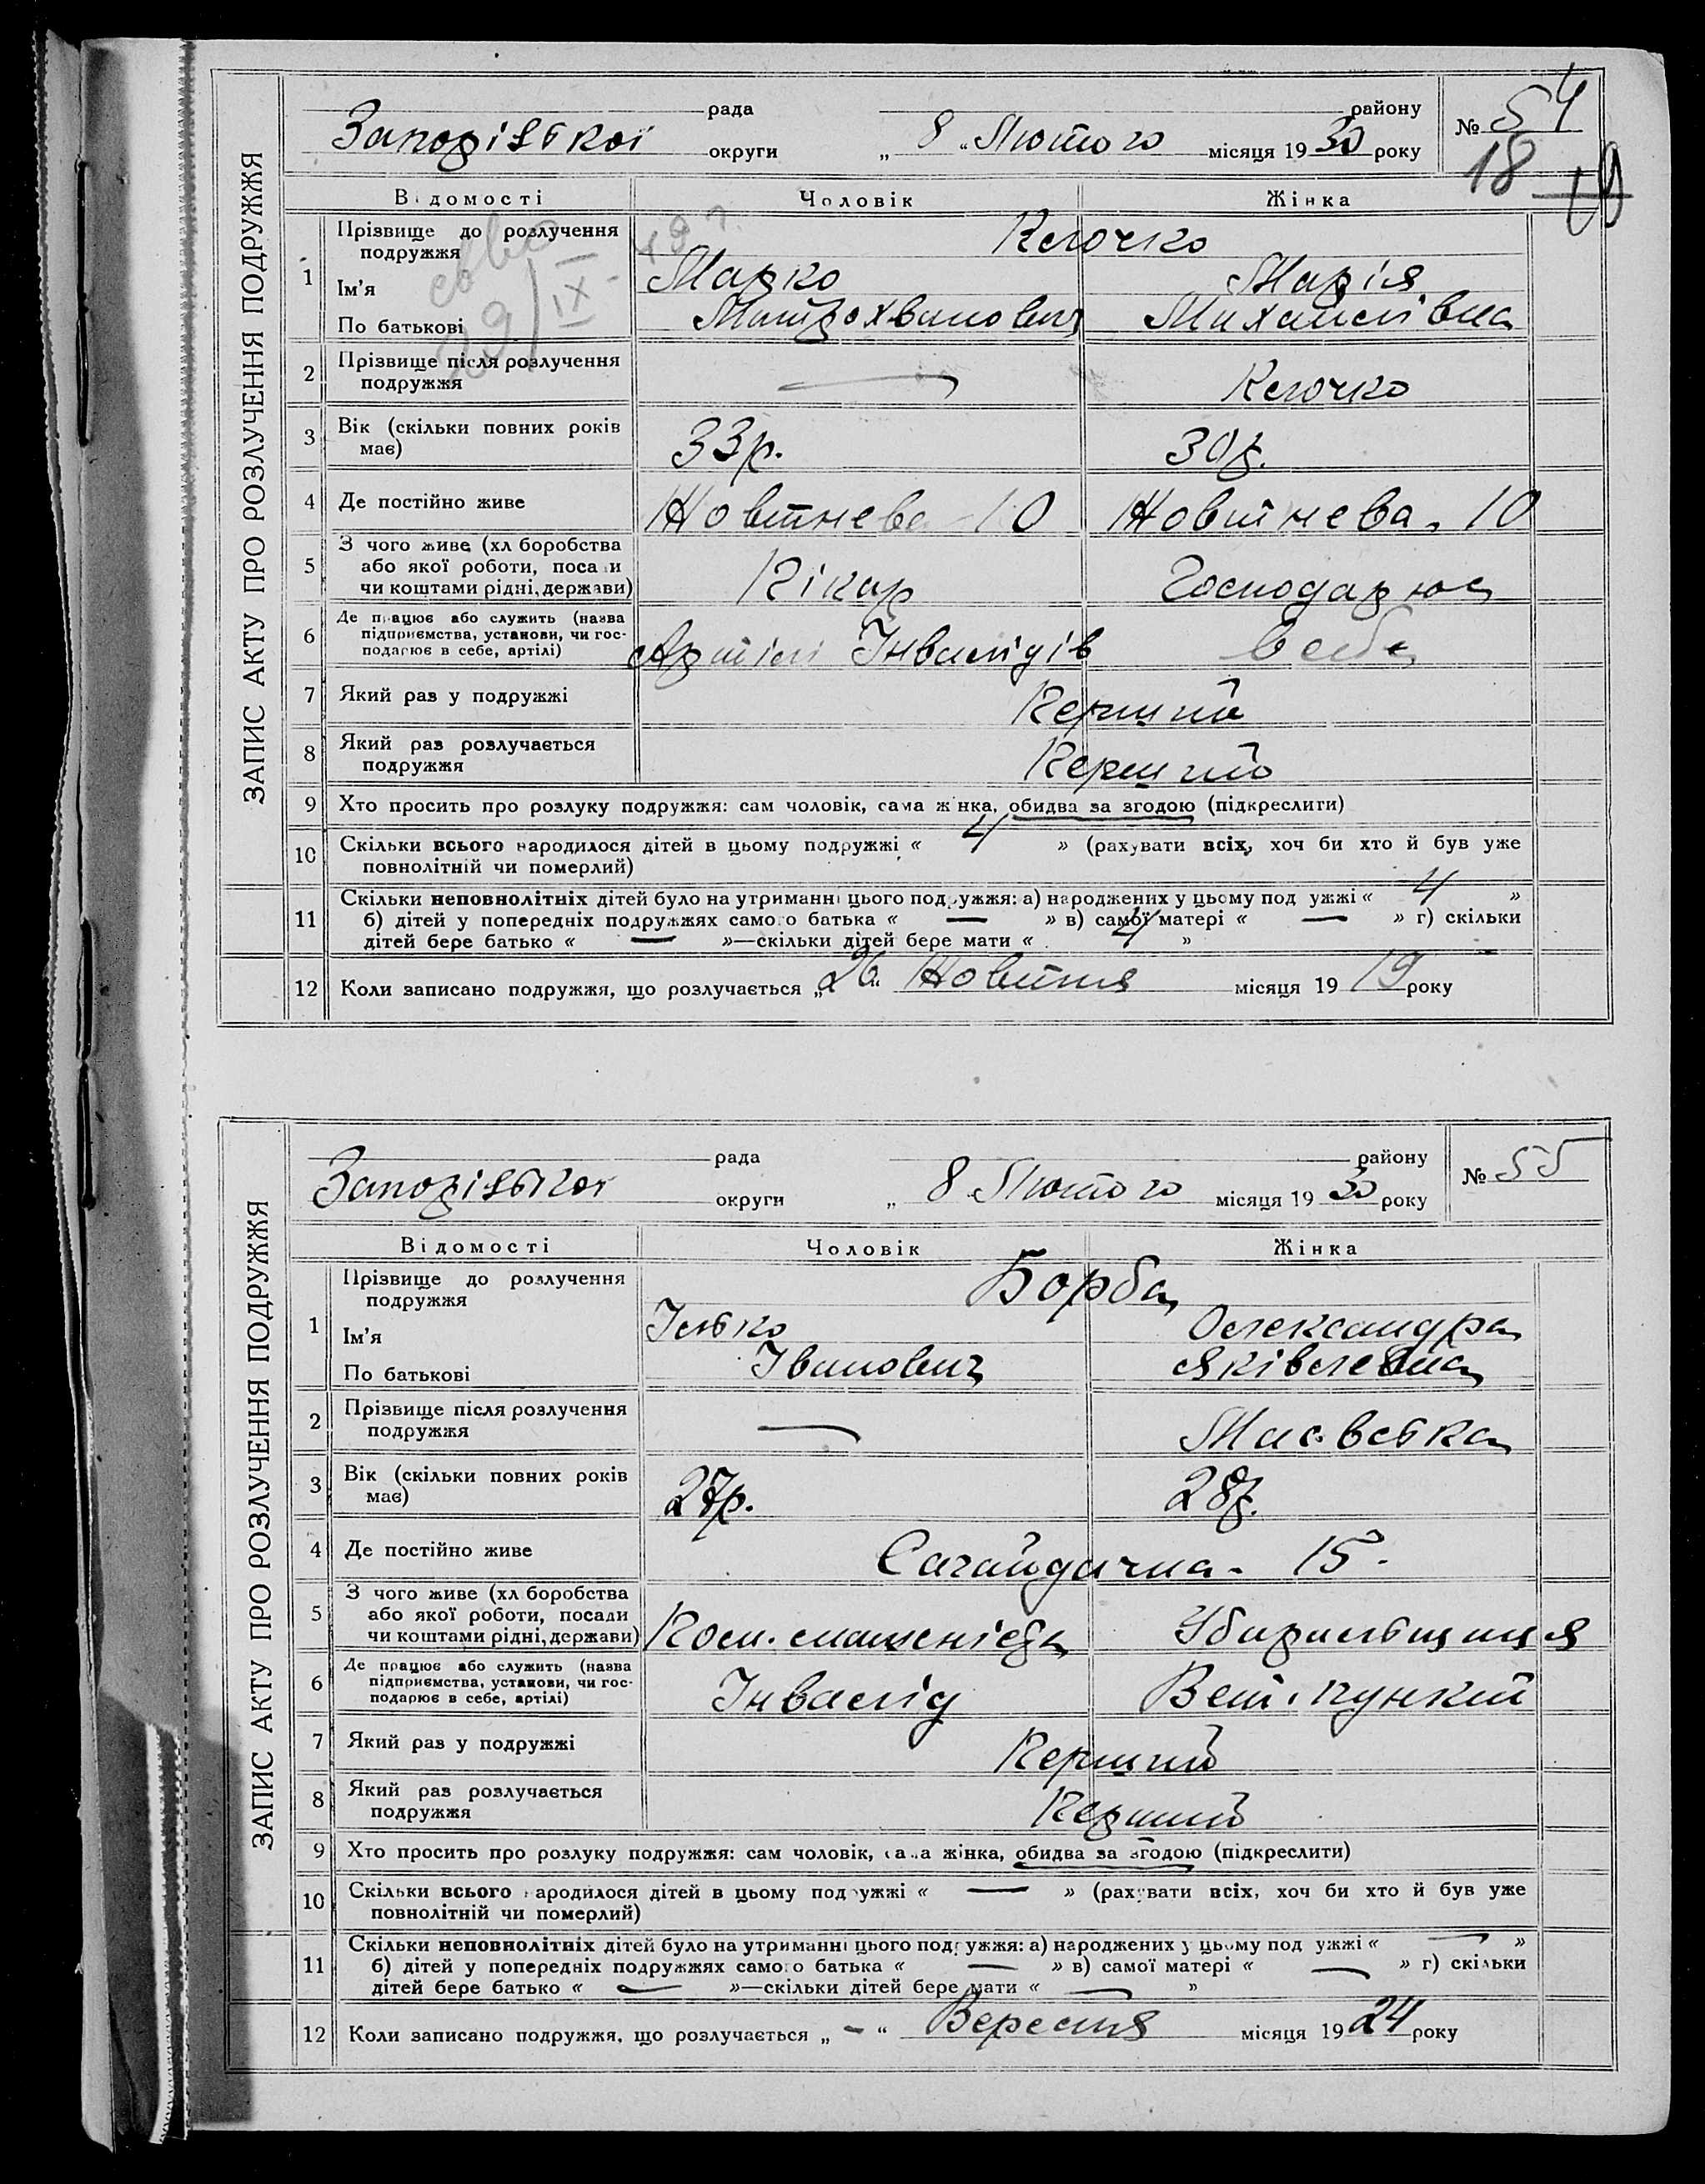 ЗАПИС АКТУ ПРО РОЗЛУЧЕННЯ ПОДРУЖЖЯ
рада району
Запорізької округи „8“ Лютого місяця 1930 року
№ 54
18
Відомості Чоловік Жінка
1 Прізвище до розлучення подружжя Клочко
Ім'я Марко Марія
По батькові Митрохванович Михайлівна
2 Прізвище після розлучення
подружжя — Клочко
3 Вік (скільки повних років
має) 33р. 30р.
4 Де постійно живе Жовтнева 10 Жовтнева. 10
5 З чого живе (хліборобства
або якої роботи, посади
чи коштами рідні, держави) Пікар Господарює
6 Де працює або служить (назва
підприємства, установи, чи гос-
подарює в себе, артілі) Артілі Інвалідів в себе
7 Який раз у подружжі Перший
8 Який раз розлучається
подружжя Перший
9 Хто просить про розлуку подружжя: сам чоловік, сама жінка, обидва за згодою (підкреслити)
10 Скільки всього народилося дітей в цьому подружжі « 4 » (рахувати всіх, хоч би хто й був уже
повнолітній чи померлий)
11 Скільки неповнолітніх дітей було на утриманні цього подружжя: а) народжених у цьому подружжі « 4 »
б) дітей у попередніх подружжях самого батька « — » в) самої матері « — » г) скільки
дітей бере батько « — »—скільки дітей бере мати « 4 »
12 Коли записано подружжя, що розлучається „26“ Жовтня місяця 1919 року
ЗАПИС АКТУ ПРО РОЗЛУЧЕННЯ ПОДРУЖЖЯ
рада району
Запорізької округи „8 Лютого місяця 1930 року
№ 55
Відомості Чоловік Жінка
1 Прізвище до розлучення
подружжя Борба
Ім'я Ілько Олександра
По батькові Іванович Яківлевна
2 Прізвище після розлучення
подружжя —
3 Вік (скільки повних років
має) 27р. 28р.
4 Де постійно живе Сагайдачна. 15.
5 З чого живе (хліборобства
або якої роботи, посади
чи коштами рідні, держави) Убиральщиця
6 Де працює або служить (назва
підприємства, установи, чи гос-
подарює в себе, артілі) Інвалід Вет. пункт
7 Який раз у подружжі Перший
8 Який раз розлучається
подружжя Перший
9 Хто просить про розлуку подружжя: сам чоловік, сама жінка, обидва за згодою (підкреслити)
10 Скільки всього народилося дітей в цьому подружжі « — » (рахувати всіх, хоч би хто й був уже
повнолітній чи померлий)
11 Скільки неповнолітніх дітей було на утриманні цього подружжя: а) народжених у цьому подружжі « — »
б) дітей у попередніх подружжях самого батька « — » в) самої матері « — » г) скільки
дітей бере батько « — »—скільки дітей бере мати « — »
12 Коли записано подружжя, що розлучається „ - “ Вересня місяця 1924 року